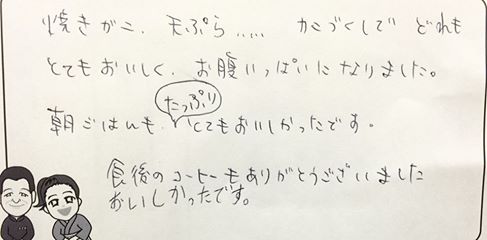 焼きがニ、天ぷら..... かにづくしで どれも
とてもおいしく、お腹いっぱいになりました。
たっぷり
朝ごはんも、とてもおいしかったです。
食後のコーヒーもありがとうございました
おいしかったです。